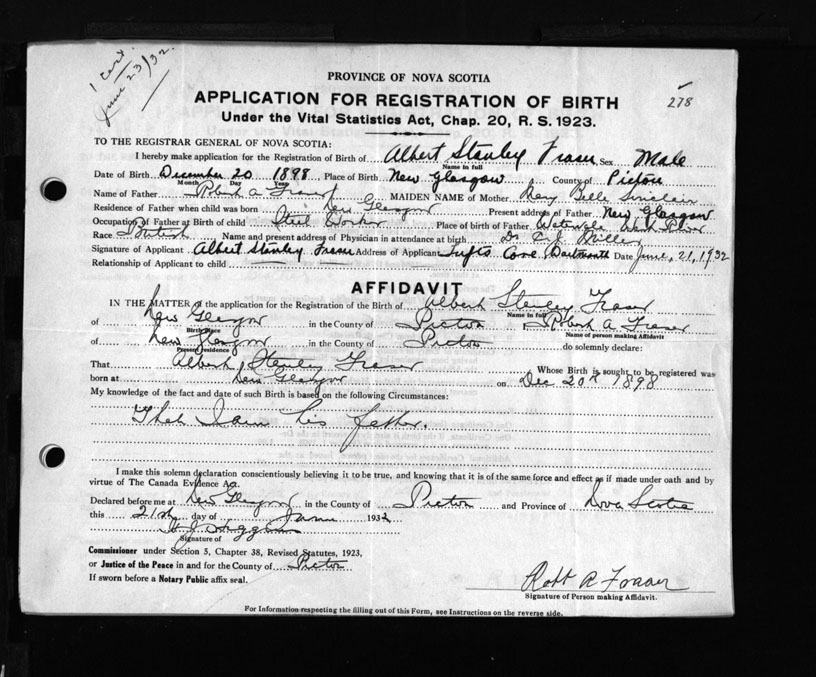 1 Cert.
June 23/32.
278
PROVINCE OF NOVA SCOTIA
APPLICATION FOR REGISTRATION OF BIRTH
Under the Vital Statistics Act, Chap. 20, R. S. 1923.
TO THE REGISTRAR GENERAL OF NOVA SCOTIA:
I hereby make application for the Registration of Birth of Albert Stanley Fraser Sex Male
Name in full
Date of Birth December 20 1898 Place of Birth New Glasgow County of Pictou
Month Day Year
Name of Father Robert A Fraser MAIDEN NAME of Mother Mary Belle Sinclair
Residence of Father when child was born New Glasgow Present address of Father New Glasgow
Occupation of Father at Birth of child Steel Worker Place of birth of Father
Race British Name and present address of Physician in attendance at birth Dr Miller
Signature of Applicant Albert Stanley Fraser Address of Applicant Tufts Cove Dartmouth Date June, 21, 1932
Relationship of Applicant to child
AFFIDAVIT
IN THE MATTER of the application for the Registration of the Birth of Albert Stanley Fraser
Name in full
of New Glasgow in the County of Pictou I Robert A Fraser
Birth Place Name of person making Affidavit
of New Glasgow in the County of Pictou do solemnly declare:
Present residence
That Albert Stanley Fraser Whose Birth is sought to be registered was
born at New Glasgow on Dec 20th 1898
My knowledge of the fact and date of such Birth is based on the following Circumstances:
That I am his father.
I make this solemn declaration conscientiously believing it to be true, and knowing that it is of the same force and effect as if made under oath and by
virtue of The Canada Evidence Act.
Declared before me at New Glasgow in the County of Pictou and Province of Nova Scotia
this 21st day of June 1932
Signature of
Commissioner under Section 5, Chapter 38, Revised Statutes, 1923,
or Justice of the Peace in and for the County of Pictou
If sworn before a Notary Public affix seal.
Robt A Fraser
Signature of Person making Affidavit.
For Information respecting the filling out of this Form, see Instructions on the reverse side.